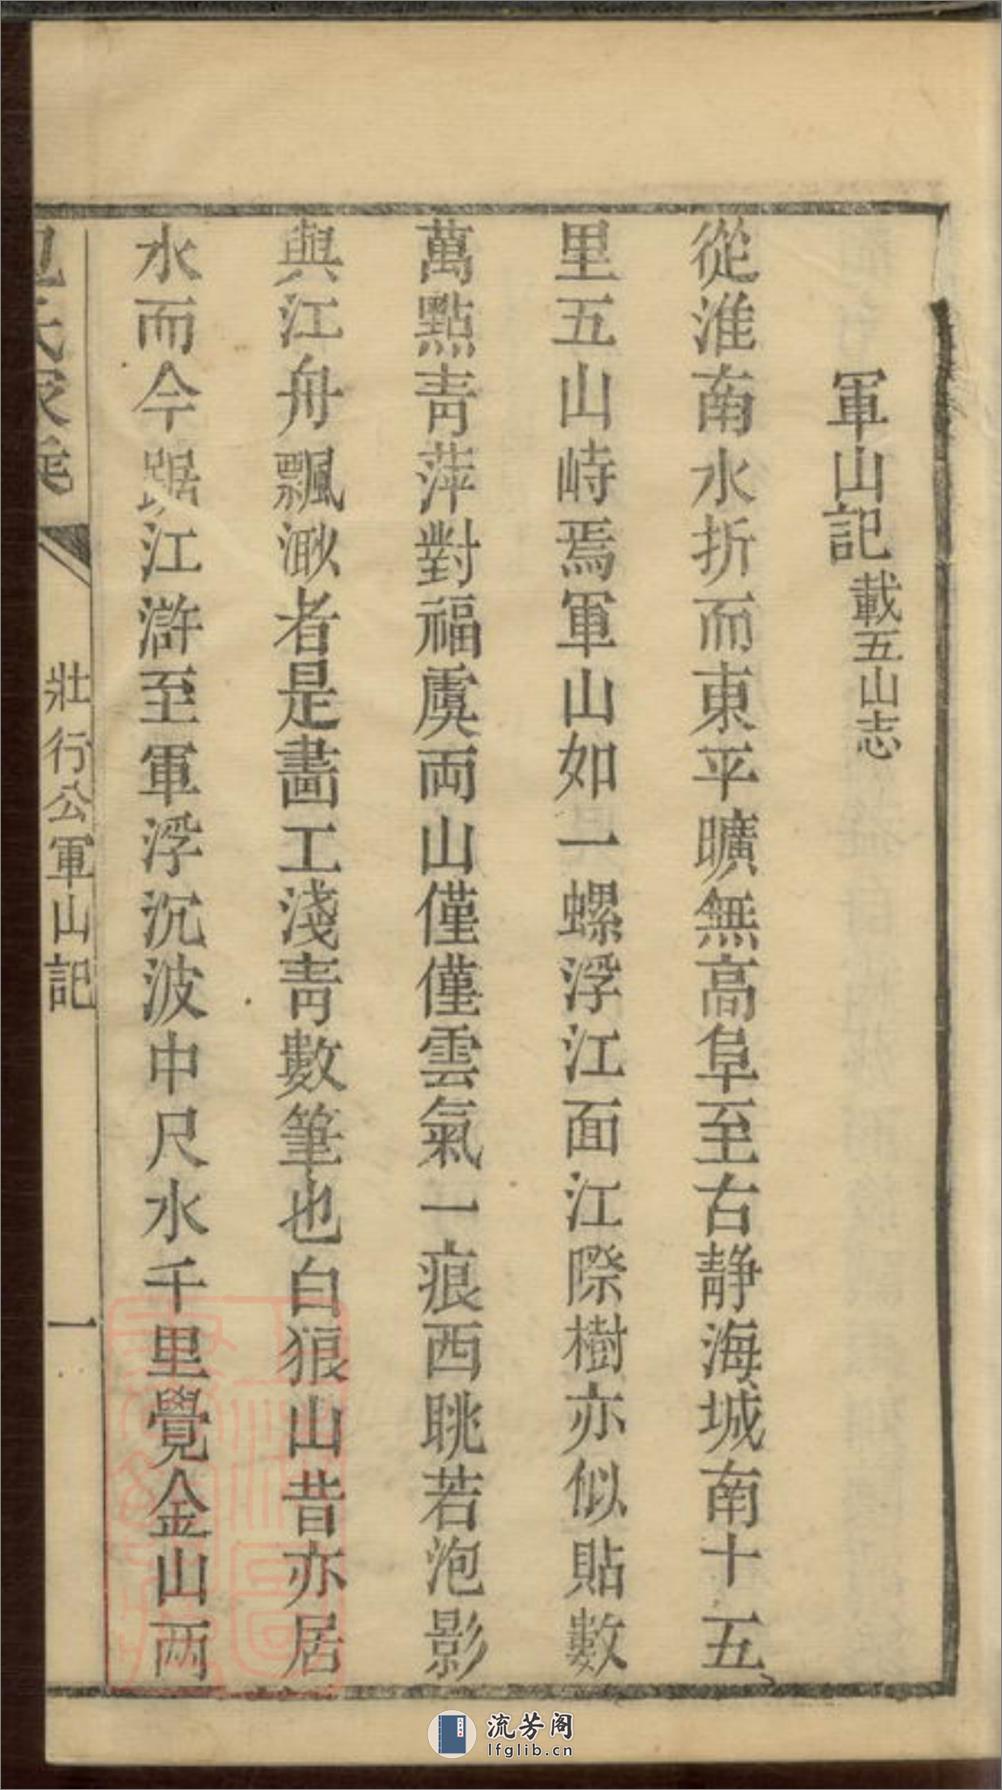 軍山記 載五山志
從淮南水折而東平曠無高阜至右静海城南十五
里五山峙焉軍山如一螺浮江面江際樹亦似貼數
萬點青萍對福虞両山僅僅雲氣一痕西眺若泡影
與江舟飄漵者是畵工淺青數筆也白狼山昔亦居
水而今踞江滸至軍浮沉波中尺水千里覺金山両
包氏家乗
壯行公軍山記
一
流芳阁
lfglib.cn